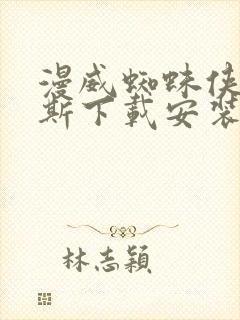 漫威蜘蛛侠
斯下载安装
林志穎